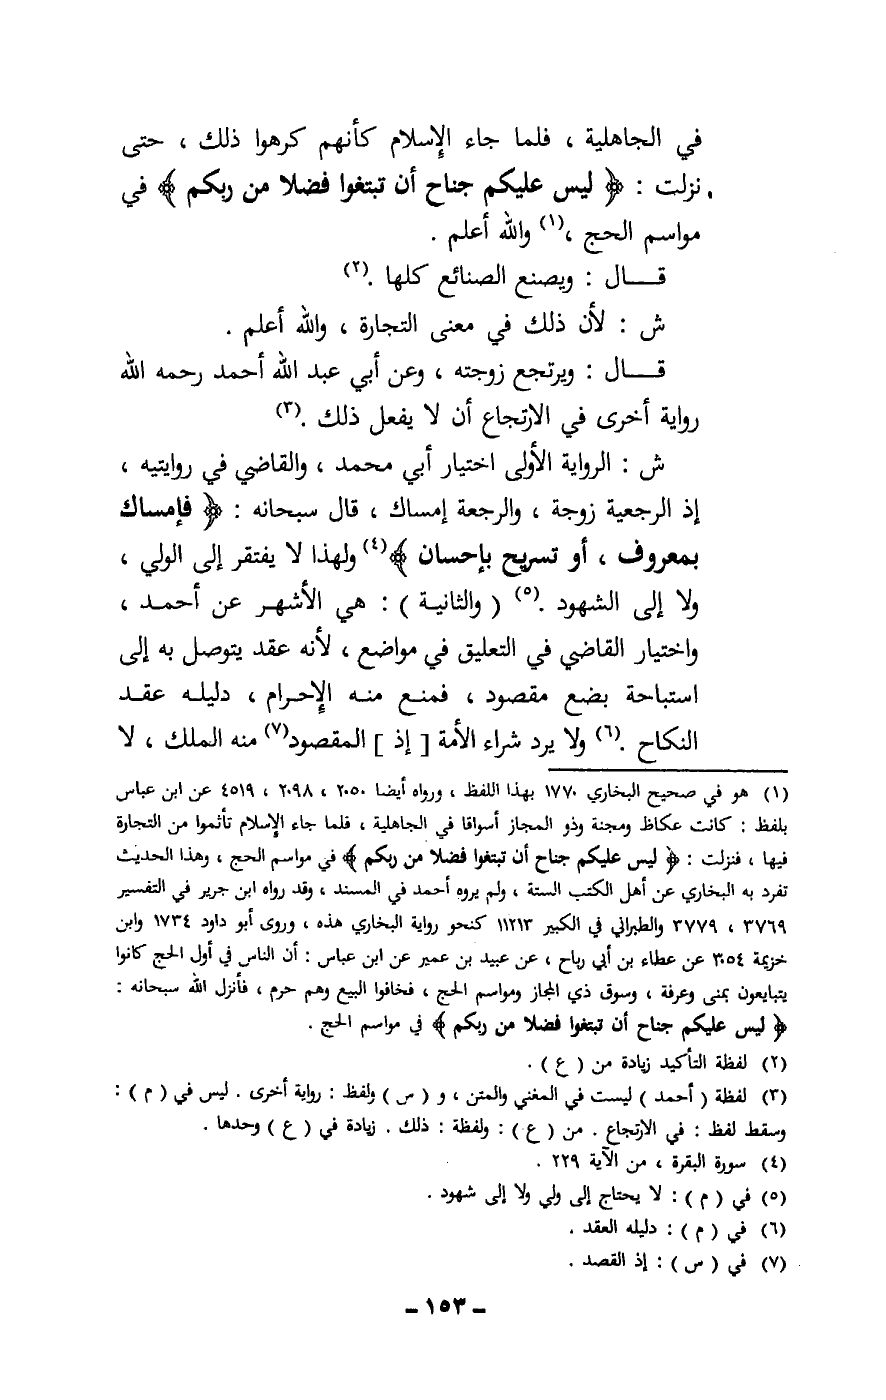 في الجاهلية ، فلما جاء الإسلام كأنهم كرهوا ذلك ، حتى
نزلت : ﴿ ليس عليكم جناح أن تبتغوا فضلا من ربكم ﴾ في
مواسم الحج ،(١) والله أعلم .
قـــال : ويصنع الصنائع كلها .(٢)
ش : لأن ذلك في معنى التجارة ، والله أعلم .
قـــال : ويرتجع زوجته ، وعن أبي عبد الله أحمد رحمه الله
رواية أخرى في الارتجاع أن لا يفعل ذلك .(٣)
ش : الرواية الأولى اختيار أبي محمد ، والقاضي في روايتيه ،
إذ الرجعية زوجة ، والرجعة إمساك ، قال سبحانه : ﴿ فإمساك
بمعروف ، أو تسريح بإحسان ﴾(٤) ولهذا لا يفتقر إلى الولي ،
ولا إلى الشهود .(٥) ( والثانية ) : هي الأشهر عن أحمد ،
واختيار القاضي في التعليق في مواضع ، لأنه عقد يتوصل به إلى
استباحة بضع مقصود ، فمنع منه الإحرام ، دليله عقد
النكاح .(٦) ولا يرد شراء الأمة [ إذ ] المقصود(٧) منه الملك ، لا
(١) هو في صحيح البخاري ١٧٧٠ بهذا اللفظ ، ورواه أيضا ٢٠٥٠ ، ٢٠٩٨ ، ٤٥١٩ عن ابن عباس
بلفظ : كانت عكاظ ومجنة وذو المجاز أسواقا في الجاهلية ، فلما جاء الإسلام تأثموا من التجارة
فيها ، فنزلت : ﴿ ليس عليكم جناح أن تبتغوا فضلا من ربكم ﴾ في مواسم الحج ، وهذا الحديث
تفرد به البخاري عن أهل الكتب الستة ، ولم يروه أحمد في المسند ، وقد رواه ابن جرير في التفسير
٣٧٦٩ ، ٣٧٧٩ والطبراني في الكبير ١١٢١٣ كنحو رواية البخاري هذه ، وروى أبو داود ١٧٣٤ وابن
خزيمة ٣٠٥٤ عن عطاء بن أبي رباح ، عن عبيد بن عمير عن ابن عباس : أن الناس في أول الحج كانوا
يتبايعون بمنى وعرفة ، وسوق ذي المجاز ومواسم الحج ، فخافوا البيع وهم حرم ، فأنزل الله سبحانه :
﴿ ليس عليكم جناح أن تبتغوا فضلا من ربكم ﴾ في مواسم الحج .
(٢) لفظة التأكيد زيادة من ( ع ) .
(٣) لفظة ( أحمد ) ليست في المغني والمتن ، و ( س ) ولفظ : رواية أخرى . ليس في ( م ) :
وسقط لفظ : في الارتجاع . من ( ع ) : ولفظة : ذلك . زيادة في ( ع ) وحدها .
(٤) سورة البقرة ، من الآية ٢٢٩ .
(٥) في ( م ) : لا يحتاج إلى ولي ولا إلى شهود .
(٦) في ( م ) : دليله العقد .
(٧) في ( س ) : إذ القصد .
ـ ١٥٣ ـ